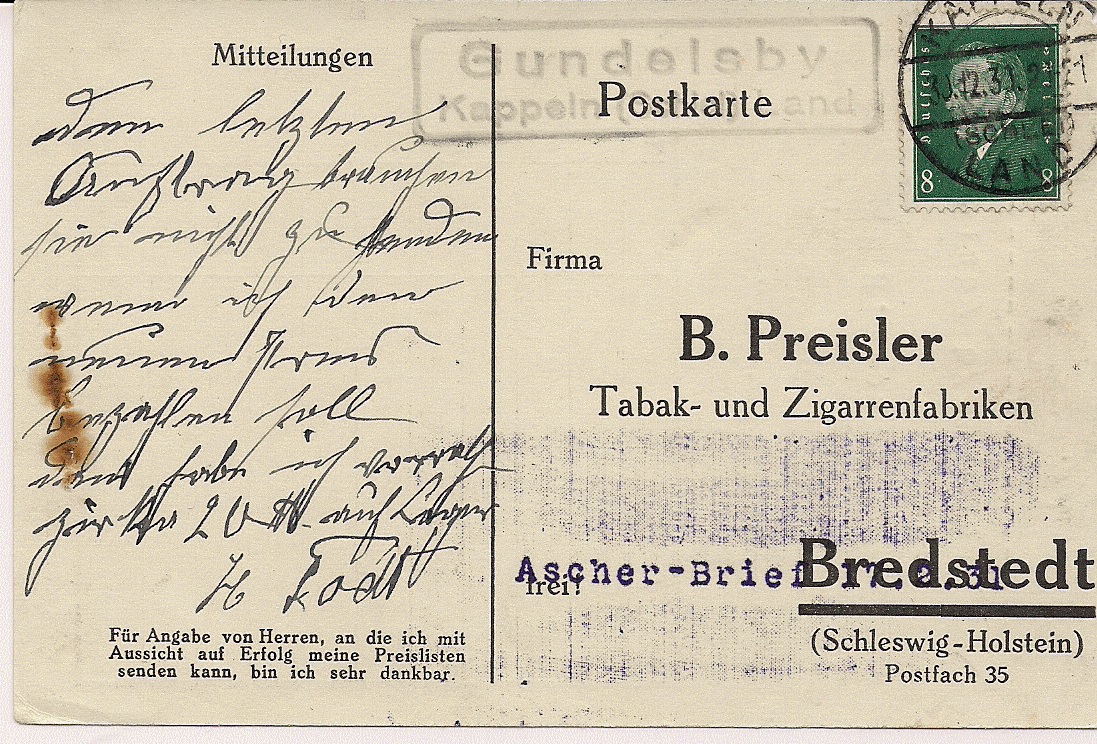 Mitteilungen
den letzten
Auftrag brauchen
sie nicht zu senden
wenn ich den
neuen Preis
bezahlen soll
den habe ich
zirka 20 auf Lager
H Todt
Für Angabe von Herren, an die ich mit
Aussicht auf Erfolg meine Preislisten
senden kann, bin ich sehr dankbar.
Gundelsby
Kappeln Land
Postkarte
KAPPELN
30.12.30
(SCHLEI)
LAND
8 8
Firma
B. Preisler
Tabak- und Zigarrenfabriken
Ascher-Brief
frei!
Bredstedt
(Schleswig-Holstein)
Postfach 35